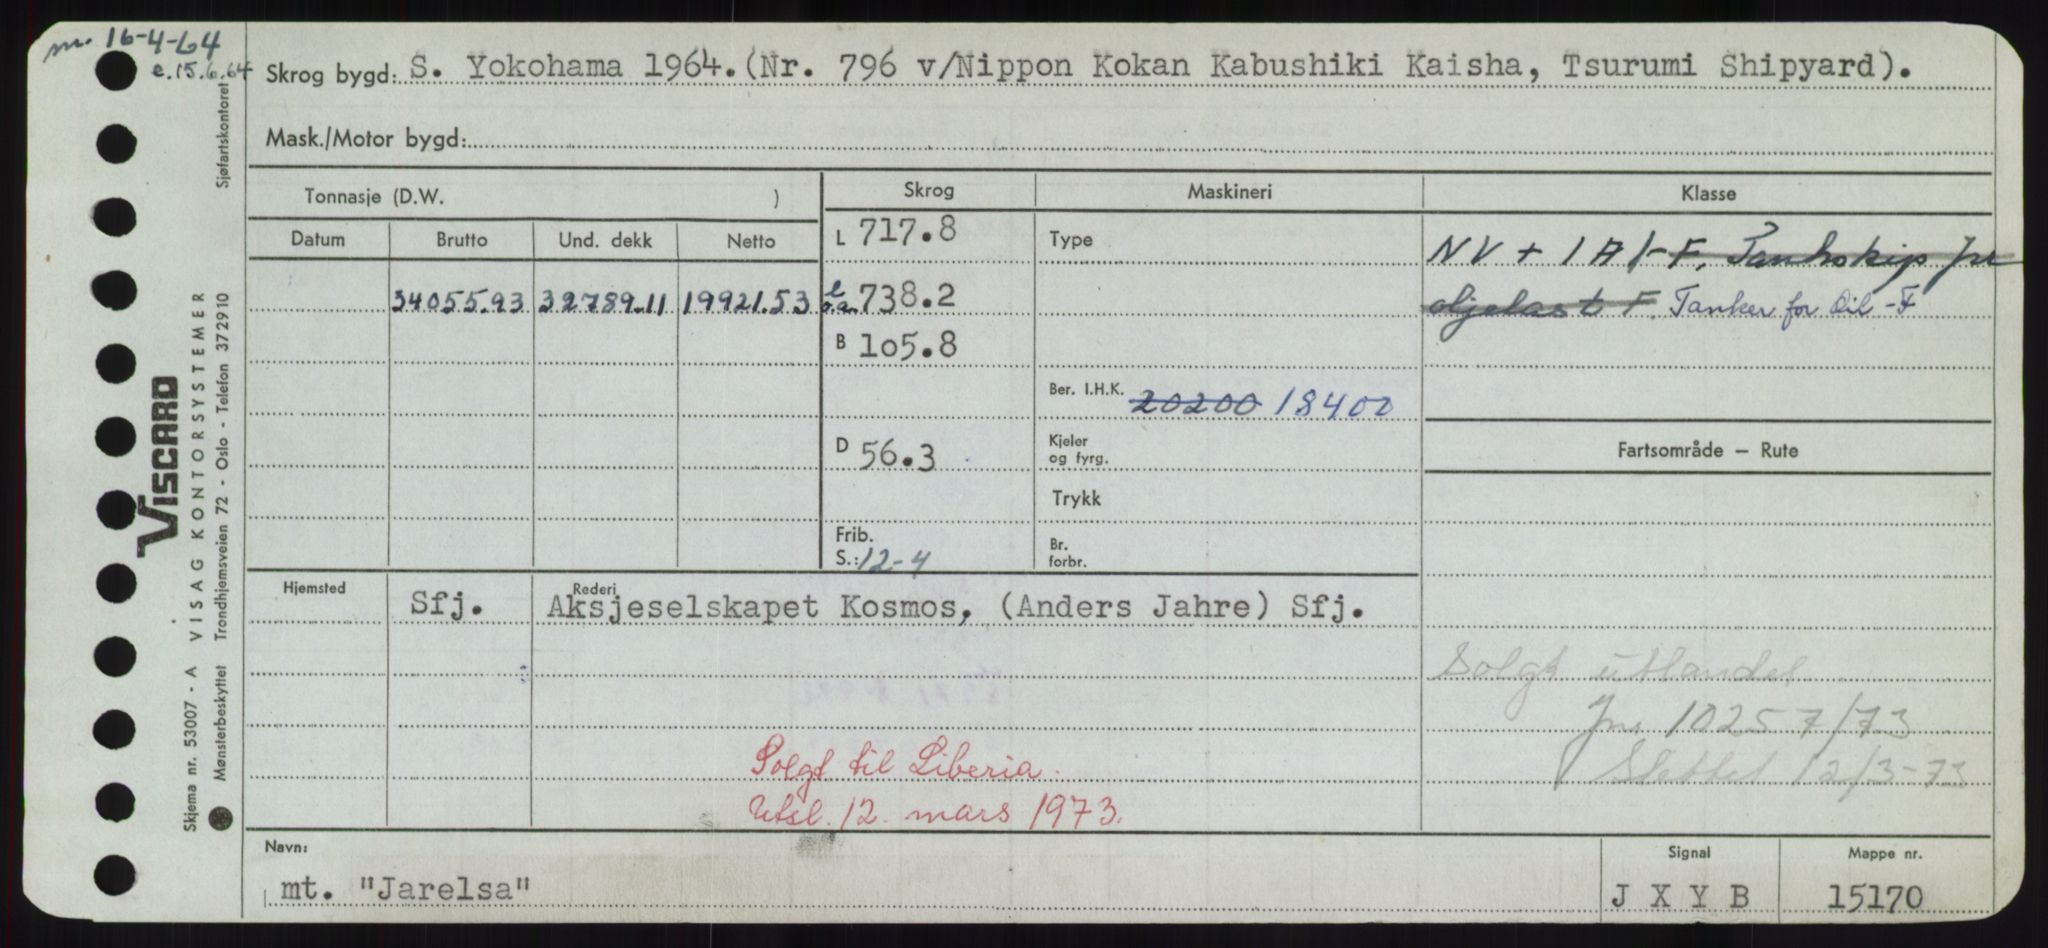 m. 16-4-64
e. 15.6.64
Skrog bygd: S. Yokohama 1964. (Nr. 796 v/Nippon Kokan Kabushiki Kaisha, Tsurumi Shipyard).
Mask./Motor bygd:
Tonnasje (D.W. )
Skrog
Maskineri
Klasse
Datum
Brutto
Und. dekk
Netto
L 717.8
Type
NV + 1A1-F, Tankskip for
34055.93 32789.11 19921.53
l o.a. 738.2
oljelast F. Tanker for Oil -F
B 105.8
Ber. I.H.K. 20200 18400
D 56.3
Kjeler
og fyrg.
Fartsområde – Rute
Trykk
Frib.
S.: 12-4
Br.
forbr.
Hjemsted
Rederi
Sfj. Aksjeselskapet Kosmos, (Anders Jahre) Sfj.
Solgt utlandet
Jnr 10257/73
Slettet 12/3-73
Solgt til Liberia.
Utsl. 12. mars 1973.
Navn:
Signal
Mappe nr.
mt. "Jarelsa"
J X Y B
15170
Skjema nr. 53007 - A VISAG KONTORSYSTEMER
VISCARD
Mønsterbeskyttet Trondhjemsveien 72 - Oslo - Telefon 372910
Sjøfartskontoret